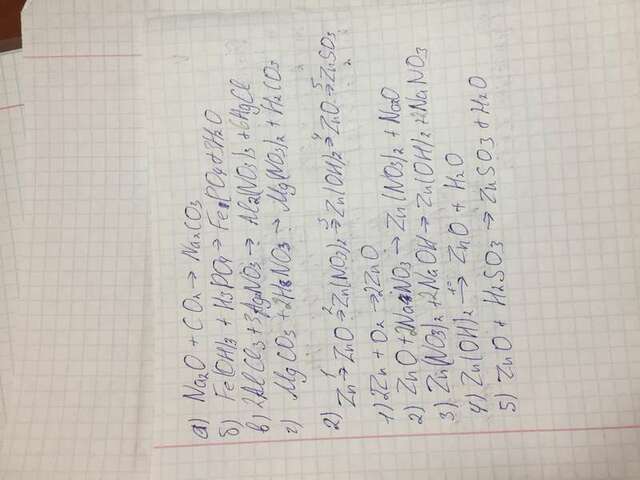 а) Na2O + CO2 → Na2CO3
б) Fe(OH)3 + H3PO4 → FePO4 + 3H2O
в) 2AlCl3 + 3AgNO3 → Al2(NO3)3 + 6AgCl
г) MgCO3 + 2HNO3 → Mg(NO3)2 + H2CO3
2) Zn 1→ ZnO 2→ Zn(NO3)2 3→ Zn(OH)2 4→ ZnO 5→ ZnSO3
1) 2Zn + O2 → 2ZnO
2) ZnO + 2NaNO3 → Zn(NO3)2 + Na2O
3) Zn(NO3)2 + 2NaOH → Zn(OH)2 + 2NaNO3
4) Zn(OH)2 t°→ ZnO + H2O
5) ZnO + H2SO3 → ZnSO3 + H2O